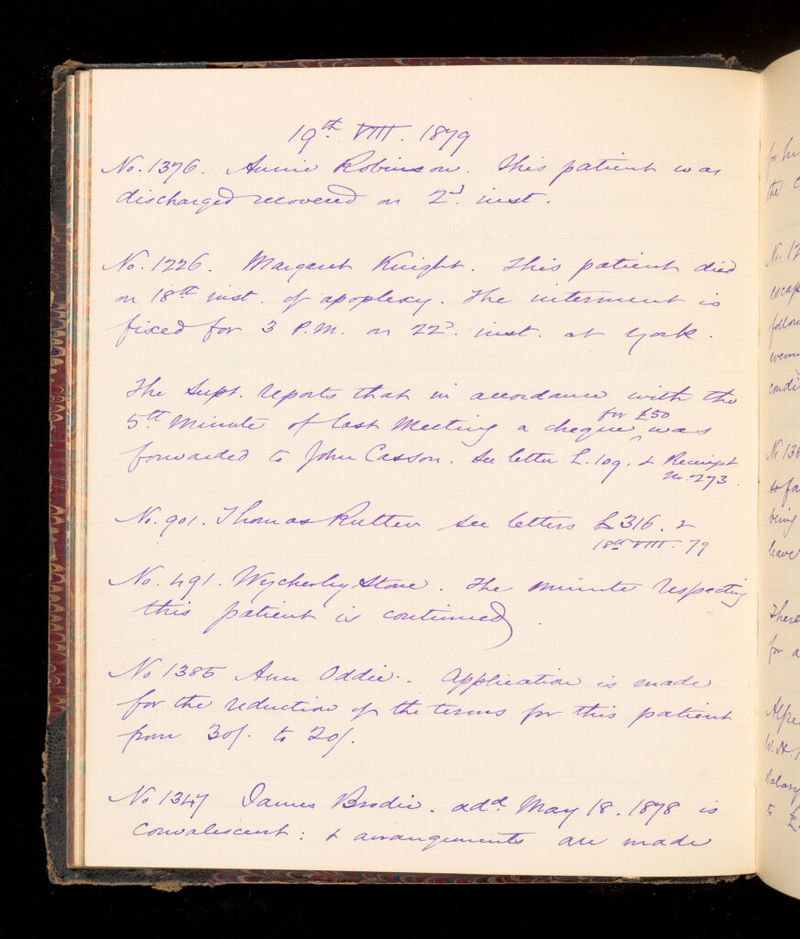 19th VIII. 1879
No. 1376. Annie Robinson. This patient was
discharged recovered on 2nd. inst.
No. 1226. Margaret Knight. This patient died
on 18th inst. of apoplexy. The interment is
fixed for 3 P.M. on 22d. inst. at York.
The Supt. reports that in accordance with the
5th Minute of last Meeting a cheque ^for £50 was
forwarded to John Casson. See letter L. 109. & Receipt
No. 273.
No. 901. Thomas Rutter see letters L 316. &
18th VIII. 79
No. 491. Wycherley Stone. The minute respecting
this patient is continued.
No 1385 Ann Oddie. Application is made
for the reduction of the terms for this patient
from 30/. to 20/.
No 1347 James Brodie. add. May 18. 1878 is
convalescent: & arrangements are made
for
the
No. 12
escap
follow
condi
No 13
so fa
being
leave
There
for a
Alfre
W. H.
Salary
to £